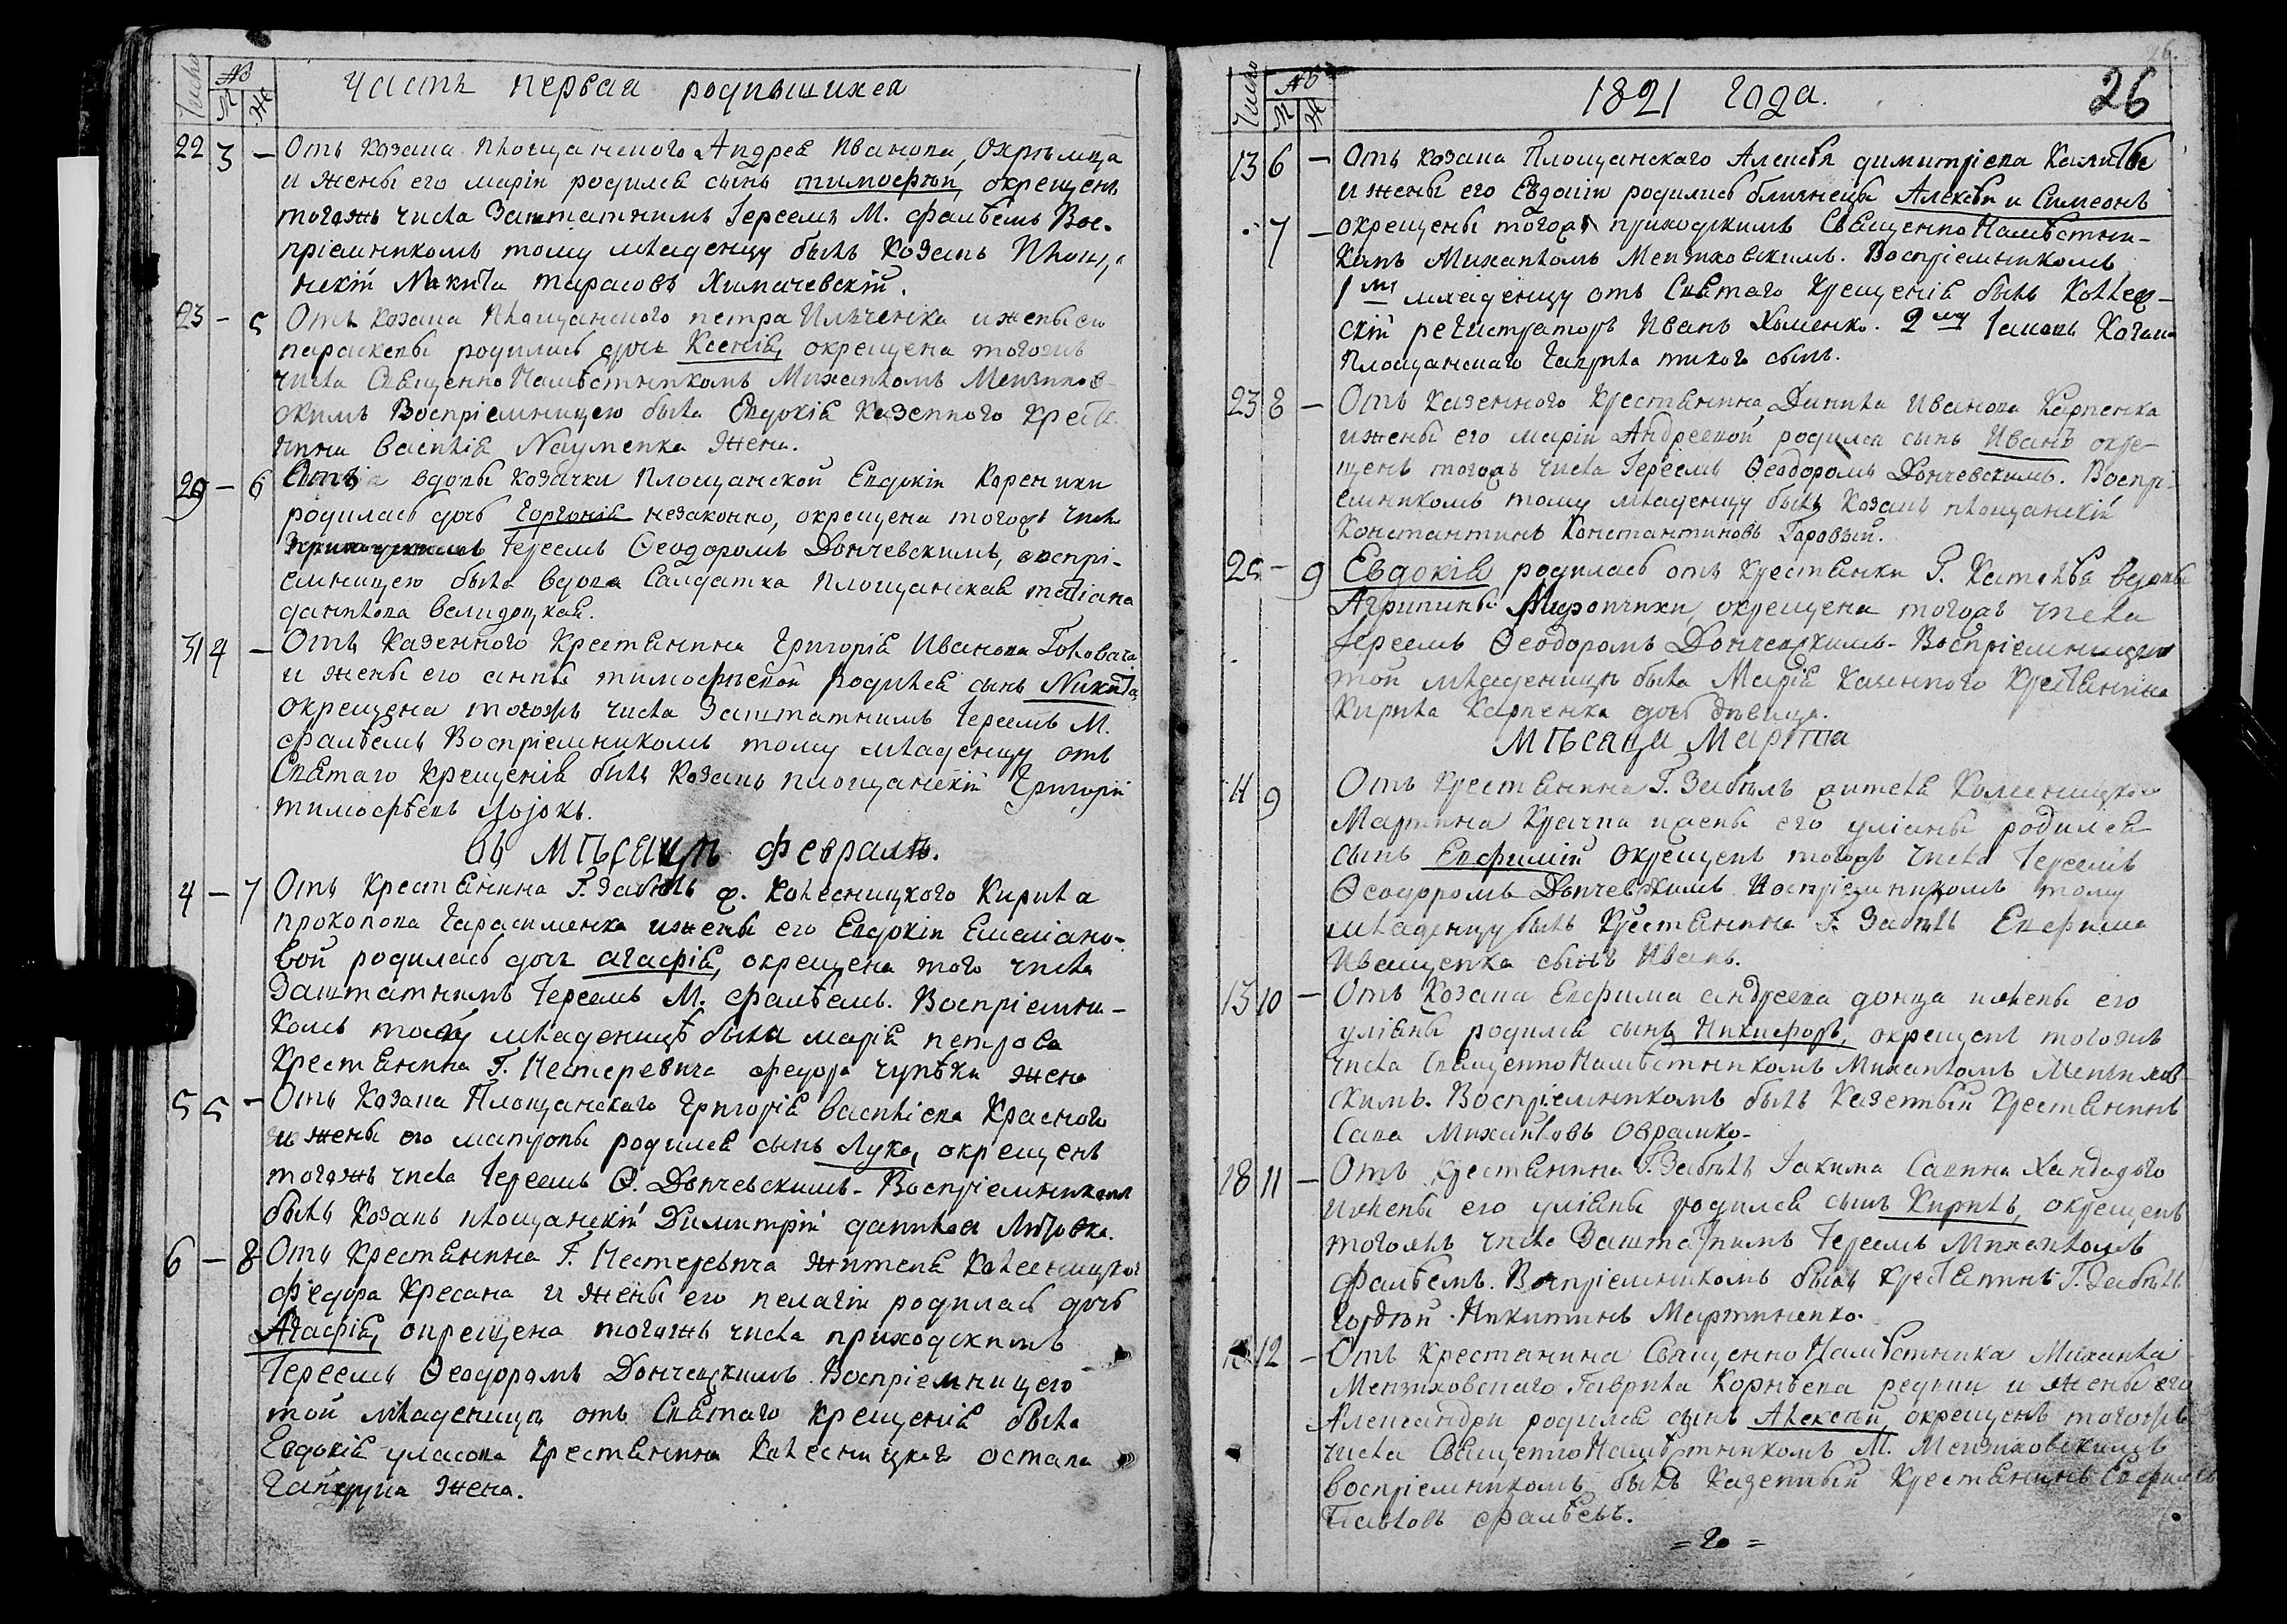 Число
№
М
Ж
Часть первая родившихся
22 3 - Отъ козака Площанского Андрея Иванова Охрѣмца
и жены его Маріи родился сынъ Тимофѣй, окрещенъ
тогожъ числа Заштатнимъ Іереемъ М. Фалѣемъ Вос-
пріемникомъ тому младенцу былъ Козакъ Площ,
нскій Никита Тарасовъ Химачевскій.
23 - 5 Отъ козака Площанского Петра Ильченка и жены его
Параскевы родилась дочь Ксенія, окрещена тогожъ
числа СвященноНамѣстникомъ Михаиломъ Мензиков-
скимъ Воспріемницею была Евдокія Казенного Крестя
нина Василія Науменка жена.
29 - 6 Отъ вдовы козачки Площанской Евдокіи Кореники
родилась дочь Горгонія незаконно, окрещена тогожъ числа
Іереемъ Ѳеодоромъ Дончевскимъ, воспрі-
емницею была вдова Салдатка Площанская Татіана
Данилова Велидоцкая.
31 4 - Отъ Казенного Крестянина Григорія Иванова Головача
и жены его Анны Тимофѣевой родился сынъ Никита,
окрещена тогожъ числа Заштатнимъ Іереемъ М.
Фалѣемъ Воспріемникомъ тому младенцу отъ
Святаго Крещенія былъ Козакъ Площанскій Григорій
Тимофѣевъ
въ Мѣсяцѣ Февралѣ.
4 - 7 Отъ Крестянина Г. Забѣлъ д. Колесницкого Кирила
Прокопова Гарасименка и жены его Евдокіи Емеліано-
вой родилась дочь Агафія, окрещена того числа
Заштатнимъ Іереемъ М. Фалѣемъ. Воспріемни-
комъ младеницѣ была Марія Петрова
Крестянина Г. Нестеревича Федора Чупѣхи жена
5 5 - Отъ Козака Площанскаго Григорія Василіева Красного
и жены его Матроны родился сынъ Лука, окрещенъ
тогожъ числа Іереемъ Ѳ. Дончевскимъ. Воспріемникомъ
былъ Козакъ Площанскій Димитрій Данилов
6 - 8 Отъ Крестянина Г. Нестеревича жителя Колесницког
Фіедора Кресана и жены его Пелагіи родилась дочь
Агафія, окрещена тогожъ числа приходскимъ
Іереемъ Ѳеодоромъ Дончевскимъ Воспріемницею
той младеницѣ отъ Святаго Крещенія была
Евдокія Уласова Крестянина Колесницкаго Остапа
жена.
26
Число
№
М
Ж
1821 Года.
26
13 6 - Отъ козака Площанскаго Алексѣя Димитріева Калиты
и жены его Евдокіи родились близнецы Алексѣй и Симеонъ
7 - окрещены тогожъ приходскимъ СвященноНамѣстни-
комъ Михаиломъ Мензиковскимъ. Воспріемникомъ
1му младенцу отъ Святаго Крещенія былъ Коллеж-
скій регистраторъ Иванъ Хоменко. 2му Козака
Площанскаго Гаврила сынъ.
23 8 - Отъ казенного Крестянина Данила Иванова Карпенка
и жены его Маріи Андреевой родился сынъ Иванъ окре-
щенъ тогожъ числа Іереемъ Ѳеодоромъ Дончевскимъ. Воспрі-
емникомъ тому младенцу былъ Козакъ Площанскій
Константинъ Константиновъ Гаровый.
25 - 9 Евдокія родилась отъ Крестянки Г. вдовы
Агрипины Мирончихи, окрещена тогожъ числа
Іереемъ Ѳеодоромъ Дончевскимъ. Воспріемницею
той младеницѣ была Марія Казенного Крестянина
Кирила Карпенка дочь Дѣвица.
Мѣсяца Марта
11 9 Отъ Крестянина Г. Забѣлъ жителя Колесницкого
Мартина и жены его Уліаны родился
сынъ Евфимій окрещенъ тогожъ числа Іереемъ
Ѳеодоромъ Дончевскимъ Воспріемникомъ тому
младенцу былъ Крестянина Г. Забѣлъ Евфима
Иващенка сынъ Иванъ.
13 10 - Отъ Козака Евфима Андреева Донца и жены его
Уліаны родился сынъ Никифоръ, окрещенъ тогожъ
числа СвященноНамѣстникомъ Михаиломъ Мензиков-
скимъ. Воспріемникомъ былъ Казенный Крестянинъ
Сава Михайловъ Аврамко.
18 11 - Отъ Крестянина Г. Забѣлъ Іакима Савина Хандадого
и жены его Уліаны родился сынъ Кирилъ, окрещенъ
тогожъ числа Заштатнимъ Іереемъ Михаиломъ
Фалѣемъ. Воспріемникомъ былъ Крестянинъ Г. Забѣлъ
Гордѣй Никитинъ Мартиненко.
12 - Отъ Крестянина СвященноНамѣстника Михаила
Мензиковскаго Гаврила Корнѣева Редьки и жены его
Александри родился сынъ Алексѣй окрещенъ тогожъ
числа СвященноНамѣстникомъ М. Мензиковскимъ
воспріемникомъ былъ Казенный Крестянинъ Евфимъ
Павловъ Фалѣевъ.